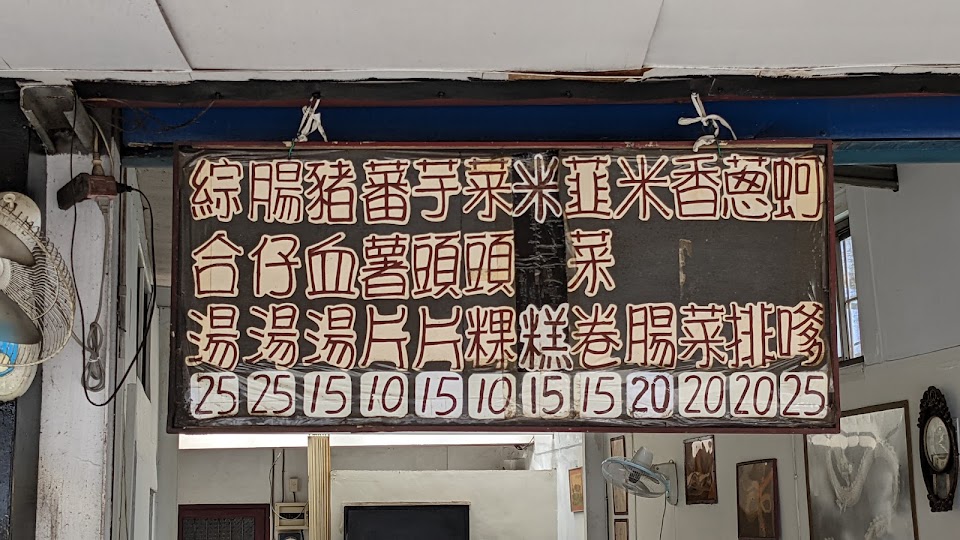 綜合湯 25
腸仔湯 25
豬血湯 15
蕃薯片 10
芋頭片 15
菜頭粿 10
米糕 15
韮菜卷 15
米腸 20
香菜 20
蔥排 20
蚵哆 25